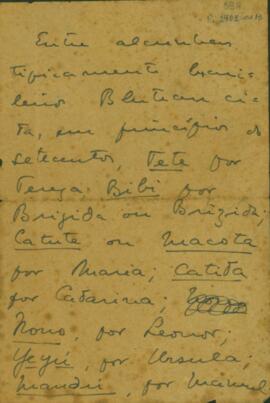 Entre alcunhas
tipicamente brasi-
leiro Bluteau ci-
ta, em princípios de
setecentos, Tete por
Tereza. Bibi por
Brigida ou Brizida;
Catute ou Macota
por Maria; Catita
for Catarina;
Nono, por Leonor;
Yeyu, por Ursula;
Mandu, por Manuel